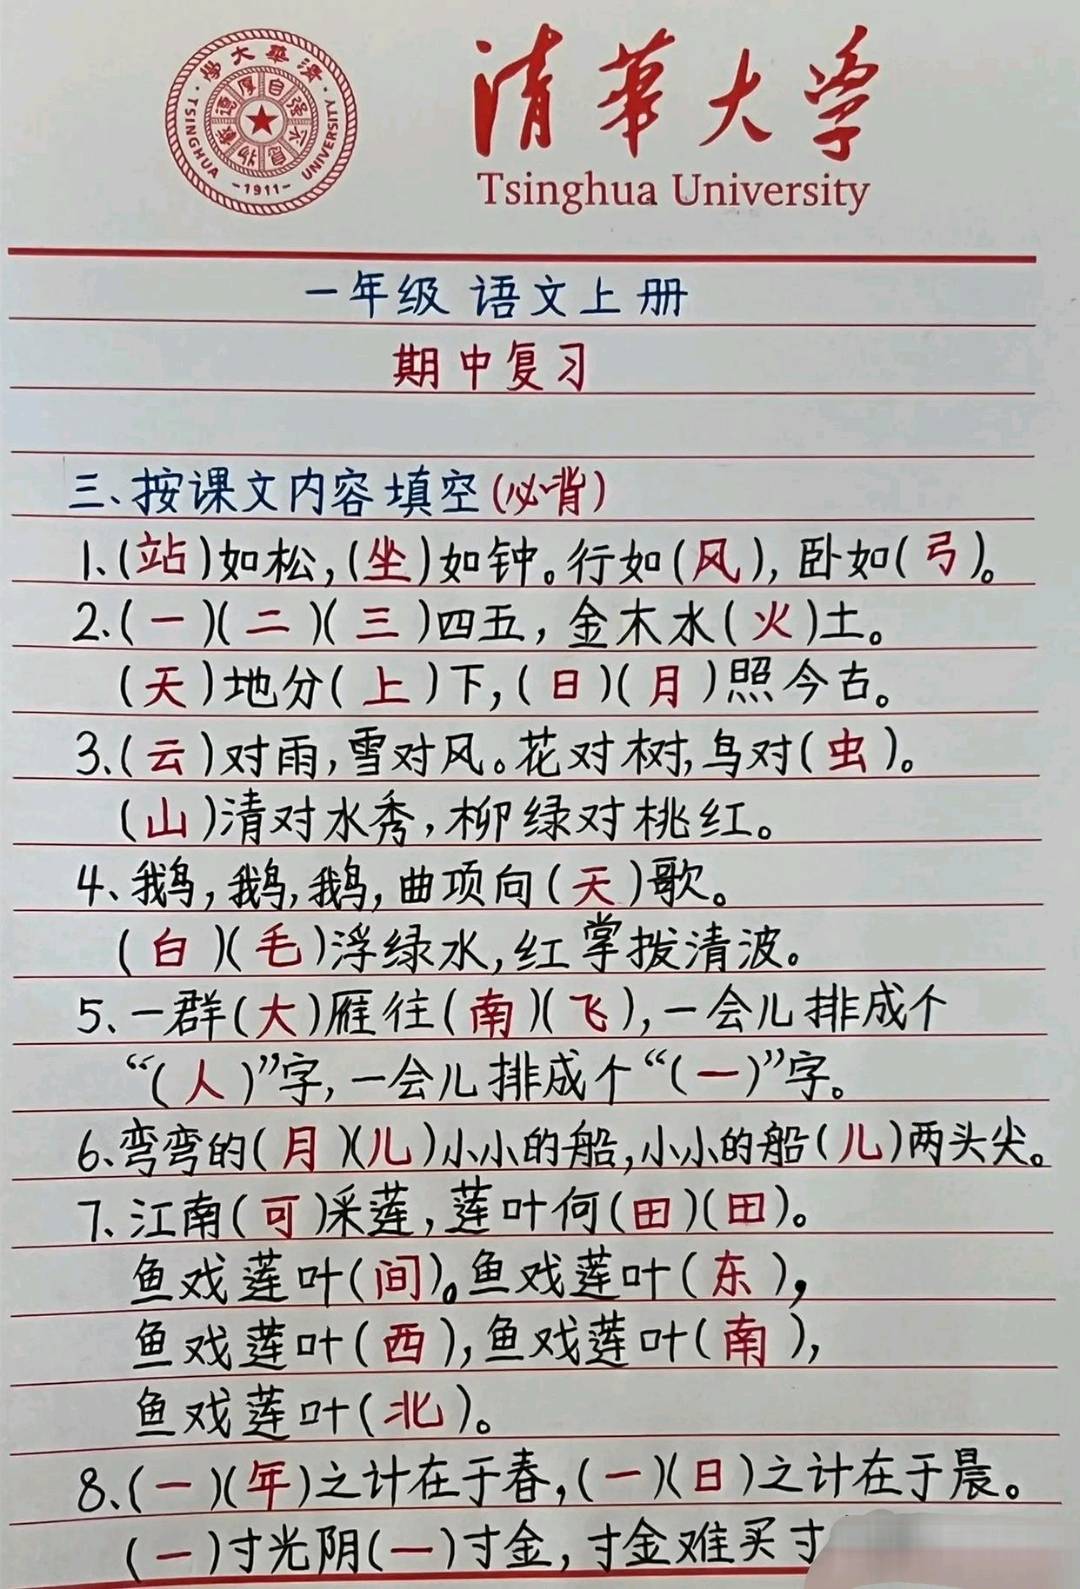 清華大学
Tsinghua University
清華大學
自强不息
厚德載物
TSINGHUA UNIVERSITY
-1911-
一年级 语文上册
期中复习
三、按课文内容填空(必背)
1、(站)如松,(坐)如钟。行如(风),卧如(弓)。
2、(一)(二)(三)四五,金木水(火)土。
(天)地分(上)下,(日)(月)照今古。
3、(云)对雨,雪对风。花对树,鸟对(虫)。
(山)清对水秀,柳绿对桃红。
4、鹅,鹅,鹅,曲项向(天)歌。
(白)(毛)浮绿水,红掌拨清波。
5、一群(大)雁往(南)(飞),一会儿排成个
“(人)”字,一会儿排成个“(一)”字。
6、弯弯的(月)(儿)小小的船,小小的船(儿)两头尖。
7、江南(可)采莲,莲叶何(田)(田)。
鱼戏莲叶(间)。鱼戏莲叶(东),
鱼戏莲叶(西),鱼戏莲叶(南),
鱼戏莲叶(北)。
8、(一)(年)之计在于春,(一)(日)之计在于晨。
(一)寸光阴(一)寸金,寸金难买寸